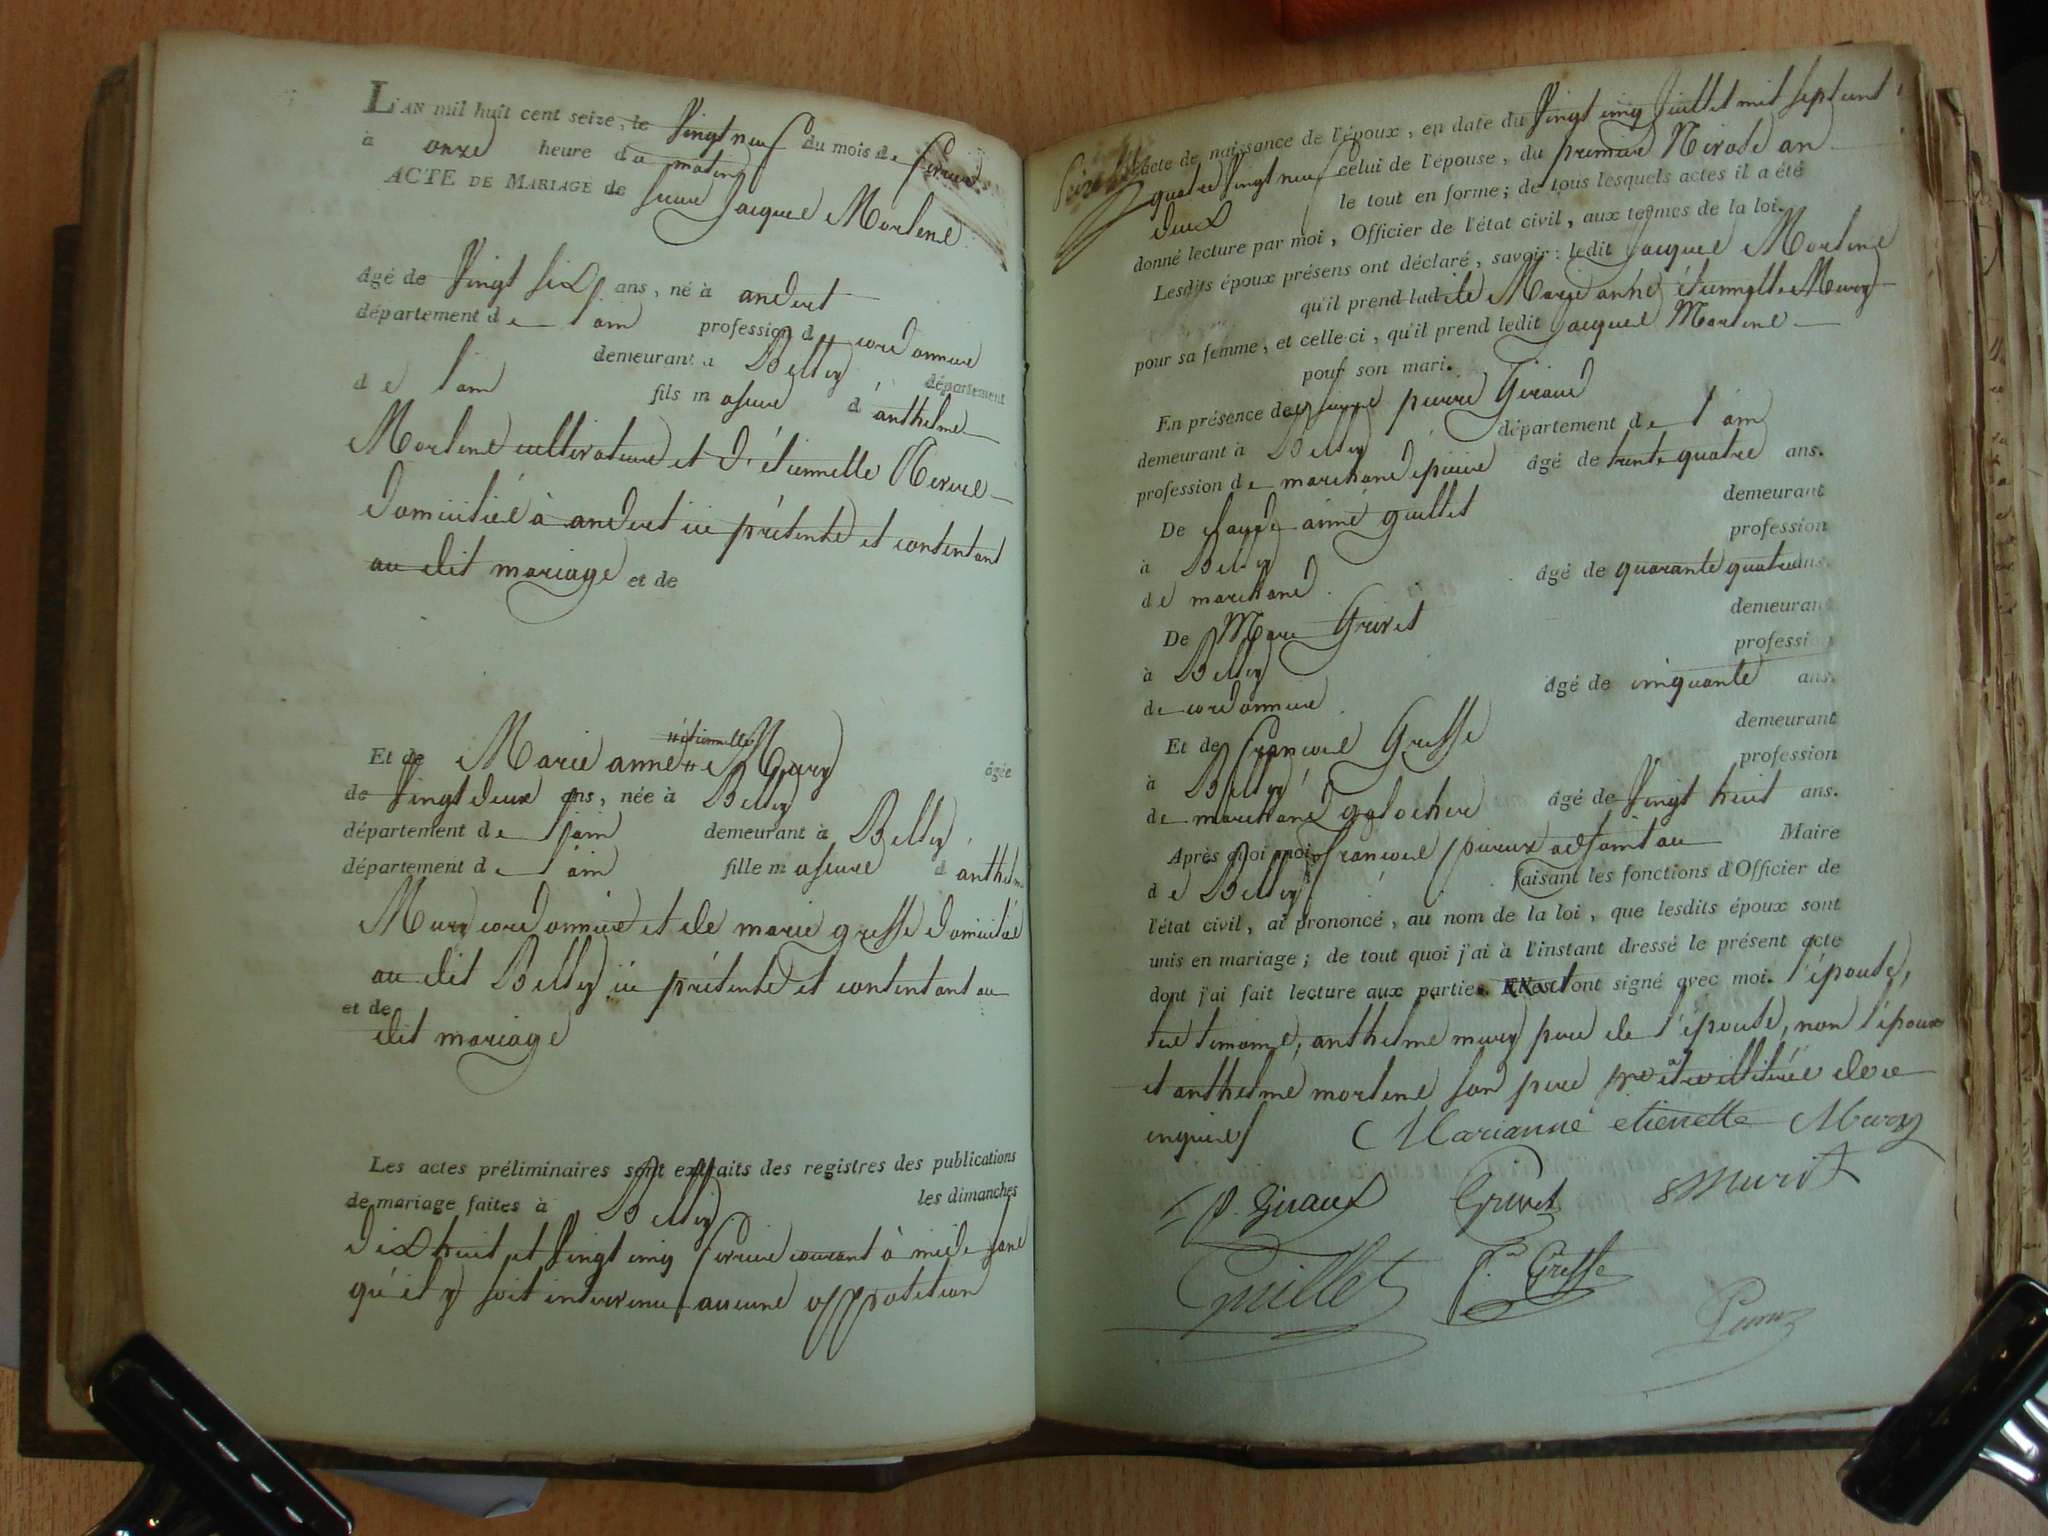 L'AN mil huit cent seize, le Vingt neuf du mois de fevrier
à onze heure du matin
ACTE DE MARIAGE de sieur Jacques Mortene
âgé de Vingt six ans, né à andert
département de l'ain profession de cordonnier
demeurant à Belley département
de l'ain fils majeur d'anthelme
Mortene cultivateur et d'étiennette
domicilié à andert ici présente et contentant
au dit mariage et de
Et de Marie anne étiennette Mury âgée
de Vingt deux ans, née à Belley
département de l'ain demeurant à Belley
département de l'ain fille majeure d anthelme
Mury cordonnier et de marie greffe domicilié
au dit Belley ici présente et contentant au
et de
dit mariage
Les actes préliminaires sont extraits des registres des publications
de mariage faites à Belley les dimanches
dix huit et Vingt cinq fevrier courant à midi sans
qu'il y soit intervenu aucune opposition
acte de naissance de l'époux, en date du Vingt cinq Juillet mil sept cent
quatre Vingt neuf celui de l'épouse, du premier Nivose an
deux le tout en forme; de tous lesquels actes il a été
donné lecture par moi, Officier de l'état civil, aux termes de la loi.
Lesdits époux présens ont déclaré, savoir: ledit Jacques Mortene
qu'il prend ladite Marie anne étiennette Mury
pour sa femme, et celle-ci, qu'il prend ledit Jacques Mortene
pour son mari.
En présence de pierre Giraud
demeurant à Belley département de l'ain
profession de marchand épicier âgé de trente quatre ans.
De Claude anné guillet demeurant
à Belley profession
de marchand âgé de quarante quatre ans.
De Marc Grivet demeurant
à Belley profession
de cordonnier âgé de cinquante ans.
Et de francois Greffe demeurant
à Belley profession
de marchand galochier âgé de Vingt huit ans.
Après quoi moi francois adjoint au Maire
de Belley faisant les fonctions d'Officier de
l'état civil, ai prononcé, au nom de la loi, que lesdits époux sont
unis en mariage; de tout quoi j'ai à l'instant dressé le présent acte
dont j'ai fait lecture aux parties. ont signé avec moi. l'épouse,
les temoins, anthelme mury pere de l'épouse, non l'époux
et anthelme mortene son pere pour être illitérés de ce
enquis
Marianne etienette Mury
P. Giraud Grivet Murit
Guillet f. Greffe